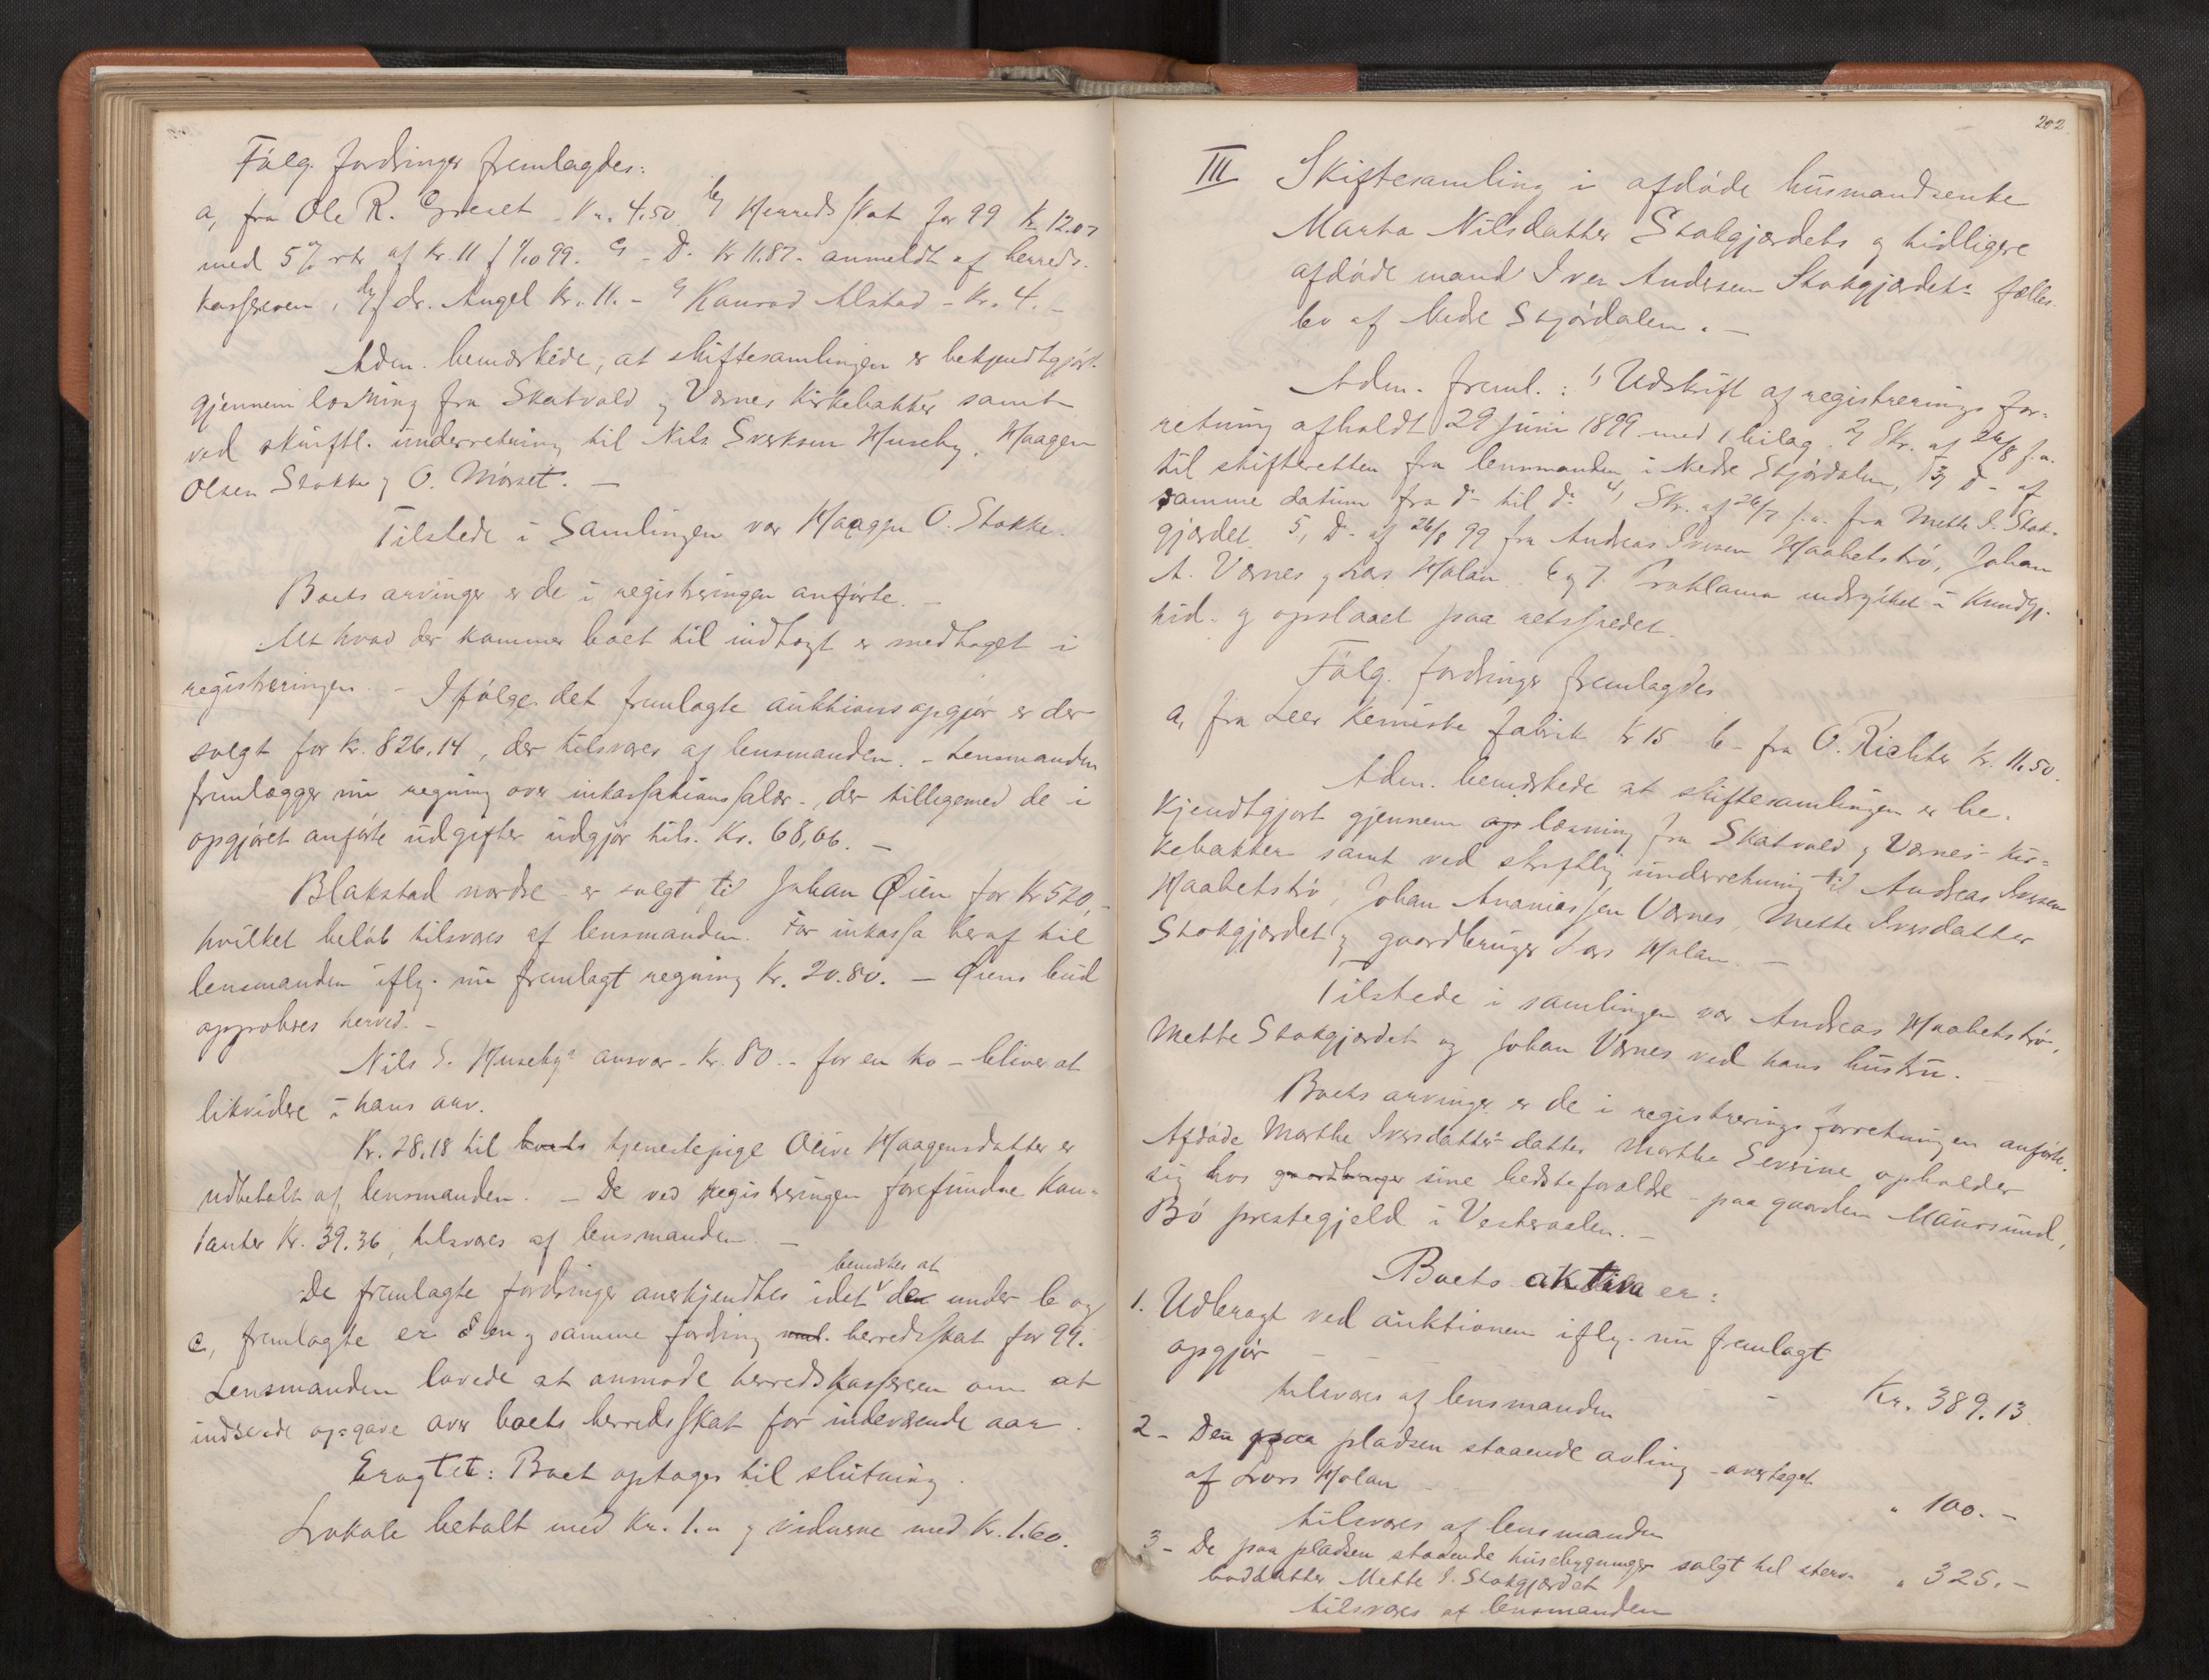 Følg. fordringer fremlagdes:
a, fra Ole R. Græset Kr. 4.50 b, Herredsskat for 99 Kr 12.07
med 5% rte af Kr. 11 f 1/10 99. c, D. Kr 11.87 - anmeldt af herreds-
kassereren, d, fra dr. Angel Kr. 11. - e, Konrad Alstad - Kr. 4. -
Adm. bemærkede, at skiftesamlingen er bekjendtgjort
gjennem læsning fra Skatvold og Værnes kirkebakker samt
ved skriftl. underretning til Nils Sverksen Huseby, Haagen
Olsen Stokke og O. Mørset. -
Tilstede i Samlingen var Haagen O. Stokke.
Boets arvinger er de i registreringen anførte. -
Alt hvad der kommer boet til indtægt er medtaget i
registreringen. - Ifølge det fremlagte auktionsopgjør er der
solgt for Kr. 826.14, der tilsvares af lensmanden. - Lensmanden
fremlægger nu regning over inkassationssalær - der tilligemed de i
opgjøret anførte udgifter udgjør tils. Kr. 68,66. -
Blakstad nordre - er solgt til Johan Øien for Kr 520,-
hvilket beløb tilsvares af lensmanden. For inkasso heraf til
lensmanden iflg. nu fremlagt regning Kr. 20.80. - Øiens bud
approberes herved. -
Nils S. Husebys ansvar - Kr. 80. - for en ko - bliver at
likvidere i hans arv.
Kr. 28.18 til boets tjenestepige Olive Haagensdatter er
udbetalt af lensmanden. - De ved registreringen forefundne Kon-
tanter Kr. 39.36, tilsvares af lensmanden. -
bemærkes at
De fremlagte fordringer anerkjendtes idet den under b og
c, fremlagte er den og samme fordring herredsskat for 99.
Lensmanden lovede at anmode herredskassereren om at
indsende opgave over boets herredsskat for indeværende aar.
Eragtet: Boet optages til slutning.
Lokale betalt med Kr. 1.- og vidnerne med Kr. 1.60.
202.
III Skiftesamling i afdøde husmandsenke
Marta Nilsdatter Stokgjærdets og tidligere
afdøde mand Iver Andersen Stokgjærdets fælles-
bo af Nedre Stjørdalen. -
Adm. freml.: 1, Udskrift af registrerings for-
retning afholdt 29 juni 1899 med 1 bilag. 2, Skr. af 26/8 f.a.
til skifteretten fra lensmanden i Nedre Stjørdalen, 3, D - af
samme datum fra d- til d- 4, Skr. af 26/7 f.a. fra Mette I. Stok-
gjærdet. 5, D- af 26/8 99 fra Andreas Iversen Haabetstrø, Johan
A. Værnes og Lars Holan. 6 og 7. Proklama indrykket i Kundgj.
tid. og opslaaet paa retsstedet.
Følg. fordringer fremlagdes
a, fra Leer kemiske fabrik Kr 15 b - fra O. Richter Kr. 11.50.
Adm. bemærkede at skiftesamlingen er be-
kjendtgjort gjennem op læsning fra Skatvold og Værnes Kir-
kebakker samt ved skriftlig underretning til Andreas Iversen
Haabetstrø, Johan Ananiassen Værnes, Mette Iversdatter
Stokgjærdet og gaardbruger Lars Holan. -
Tilstede i samlingen var Andreas Haabetstrø,
Mette Stokgjærdet og Johan Værnes ved hans hustru. -
Boets arvinger er de i registreringsforretningen anførte.
Afdøde Marthe Iversdatters datter Marthe Severine opholder
sig hos gaardbruger sine bedsteforældre - paa gaarden Maursund,
Bø prestegjeld i Vesteraalen. -
Boets aktiva er:
1. Udbragt ved auktionen iflg. nu fremlagt
opgjør - - - - Kr. 389.13
tilsvares af lensmanden
2 - Den paa pladsen staaende avling - overtaget
af Lars Holan - " 100. -
tilsvares af lensmanden
3 - De paa pladsen staaende husebygninger solgt til sterv-
boddatter Mette I. Stokgjærdet " 325. -
tilsvares af lensmanden